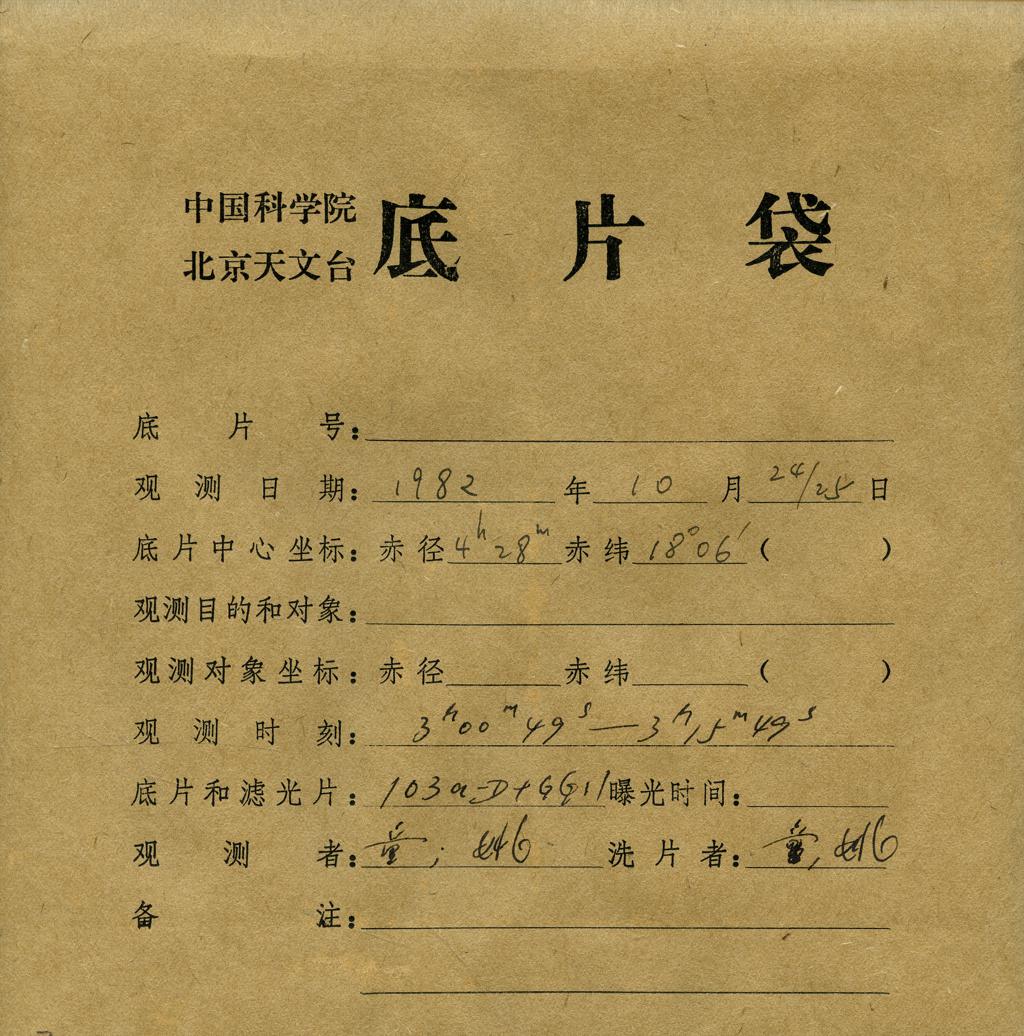 中国科学院
北京天文台
底片袋
底片号：
观测日期：1982年10月24/25日
底片中心坐标：赤径4h28m赤纬18°06′（ ）
观测目的和对象：
观测对象坐标：赤径 赤纬 （ ）
观测时刻：3h00m49s—3h15m49s
底片和滤光片：103a-D+GG11曝光时间：
观测者：童； 洗片者：童，
备注：